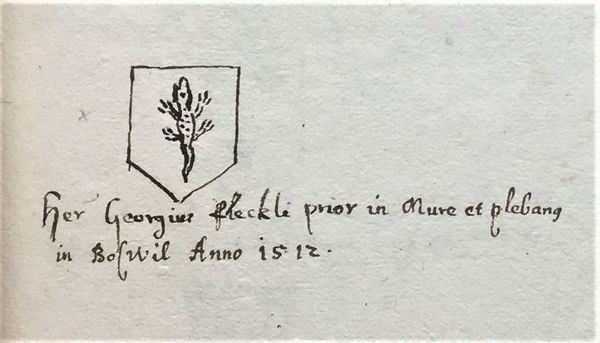 Her Georgius fleckli prior in Mure et plebanꝰ
in Boſwil Anno 1512.